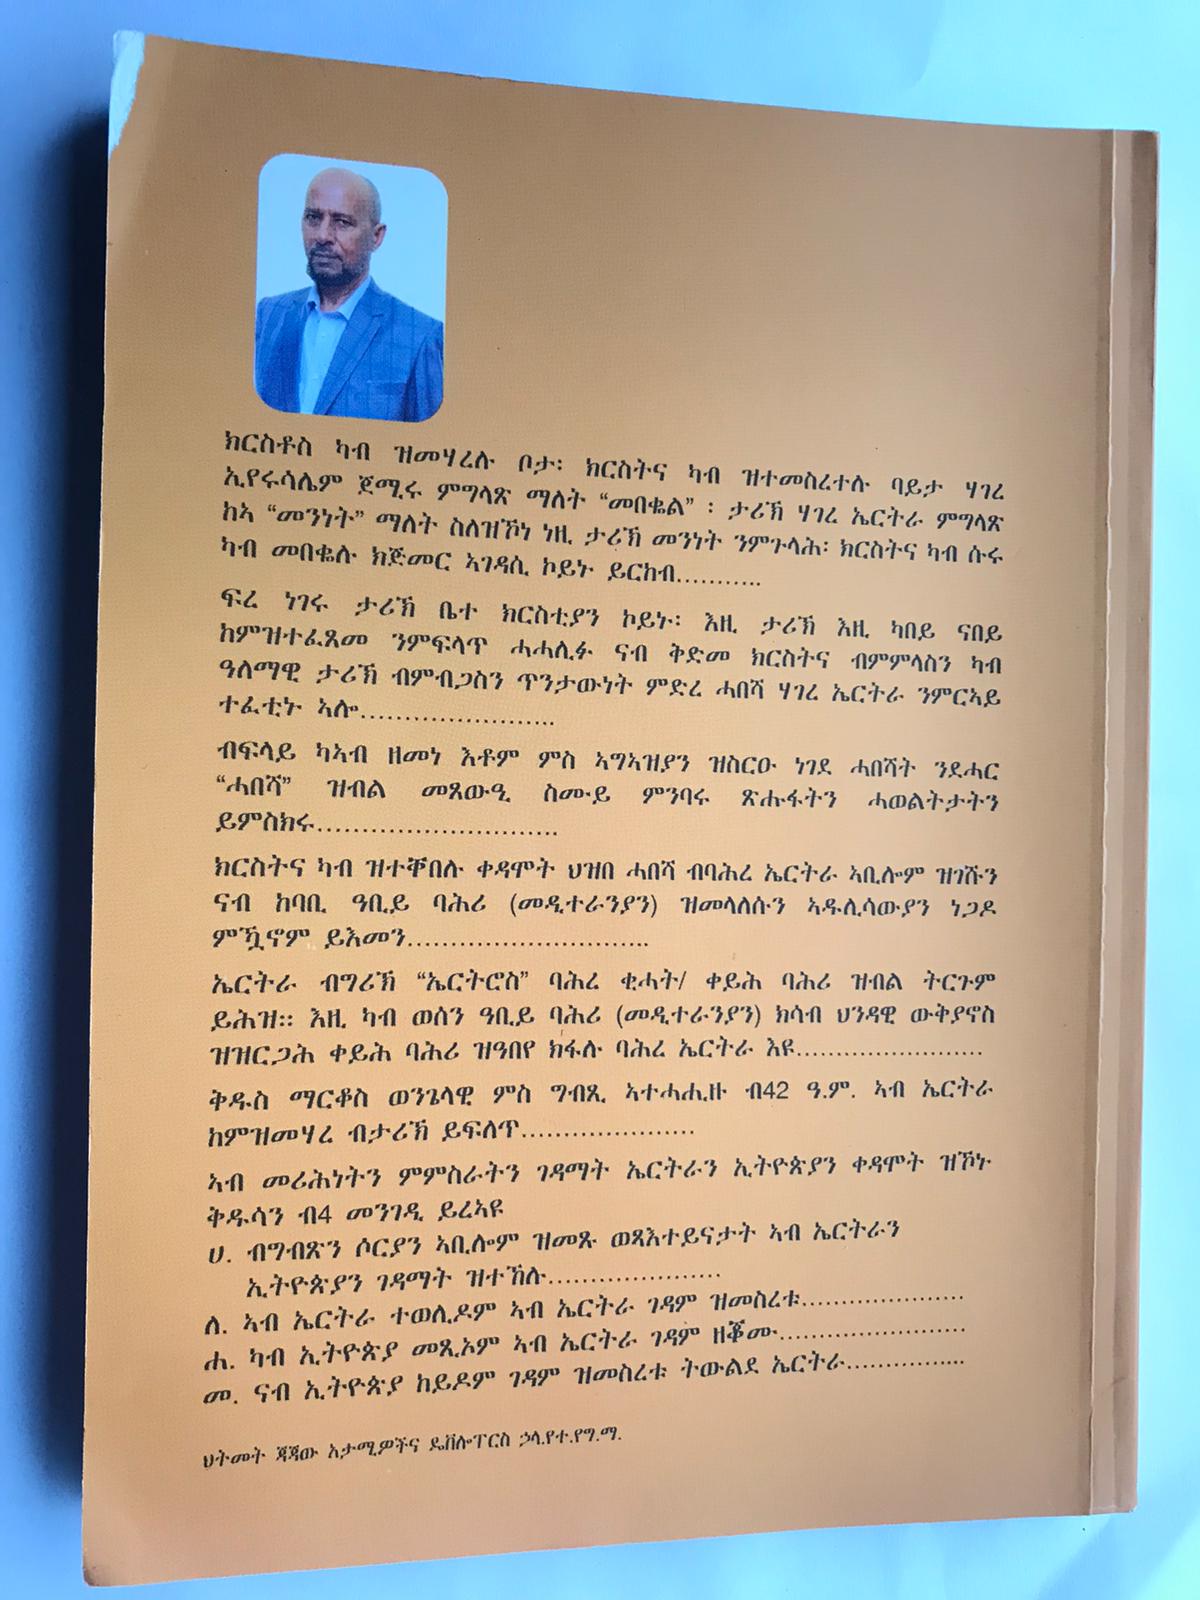 ክርስቶስ ካብ ዝመሃረሉ ቦታ፡ ክርስትና ካብ ዝተመስረተሉ ባይታ ሃገረ
ኢየሩሳሌም ጀሚሩ ምግላጽ ማለት “መበቈል” ፡ ታሪኽ ሃገረ ኤርትራ ምግላጽ
ከኣ “መንነት” ማለት ስለዝኾነ ነዚ ታሪኽ መንነት ንምጉላሕ፡ ክርስትና ካብ ሱሩ
ካብ መበቈሉ ክጅመር ኣገዳሲ ኮይኑ ይርከብ...........
ፍረ ነገሩ ታሪኽ ቤተ ክርስቲያን ኮይኑ፡ እዚ ታሪኽ እዚ ካበይ ናበይ
ከምዝተፈጸመ ንምፍላጥ ሓሓሊፉ ናብ ቅድመ ክርስትና ብምምላስን ካብ
ዓለማዊ ታሪኽ ብምብጋስን ጥንታውነት ምድረ ሓበሻ ሃገረ ኤርትራ ንምርኣይ
ተፈቲኑ ኣሎ.......................
ብፍላይ ካኣብ ዘመነ እቶም ምስ ኣግኣዝያን ዝስርዑ ነገደ ሓበሻት ንደሓር
“ሓበሻ” ዝብል መጸውዒ ስሙይ ምንባሩ ጽሑፋትን ሓወልትታትን
ይምስክሩ............................
ክርስትና ካብ ዝተቐበሉ ቀዳሞት ህዝበ ሓበሻ ብባሕረ ኤርትራ ኣቢሎም ዝገሹን
ናብ ከባቢ ዓቢይ ባሕሪ (መዲተራንያን) ዝመላለሱን ኣዱሊሳውያን ነጋዶ
ምዃኖም ይእመን............................
ኤርትራ ብግሪኽ “ኤርትሮስ” ባሕረ ቂሓት/ ቀይሕ ባሕሪ ዝብል ትርጉም
ይሕዝ። እዚ ካብ ወሰን ዓቢይ ባሕሪ (መዲተራንያን) ክሳብ ህንዳዊ ውቅያኖስ
ዝዝርጋሕ ቀይሕ ባሕሪ ዝዓበየ ክፋሉ ባሕረ ኤርትራ እዩ......................
ቅዱስ ማርቆስ ወንጌላዊ ምስ ግብጺ ኣተሓሒዙ ብ42 ዓ.ም. ኣብ ኤርትራ
ከምዝመሃረ ብታሪኽ ይፍለጥ....................
ኣብ መሪሕነትን ምምስራትን ገዳማት ኤርትራን ኢትዮጵያን ቀዳሞት ዝኾኑ
ቅዱሳን ብ4 መንገዲ ይረኣዩ
ሀ. ብግብጽን ሶርያን ኣቢሎም ዝመጹ ወጻእተይናታት ኣብ ኤርትራን
ኢትዮጵያን ገዳማት ዝተኸሉ....................
ለ. ኣብ ኤርትራ ተወሊዶም ኣብ ኤርትራ ገዳም ዝመስረቱ...................
ሐ. ካብ ኢትዮጵያ መጺኦም ኣብ ኤርትራ ገዳም ዘቖሙ......................
መ. ናብ ኢትዮጵያ ከይዶም ገዳም ዝመስረቱ ትውልደ ኤርትራ..............
ህትመት ጃጃው አታሚዎችና ዴቨሎፐርስ ኃላ.የተ.የግ.ማ.